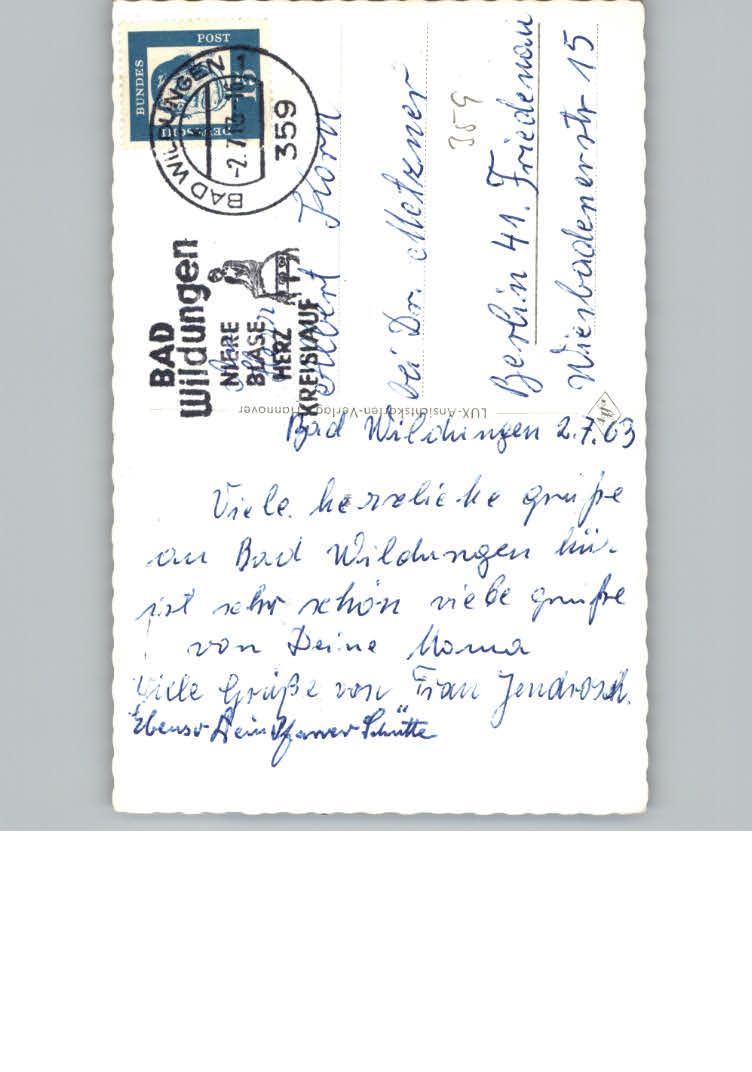 Bad Wildungen 2.7.63
Viele herzliche grüße
aus Bad Wildungen hir
ist sehr schön viele grüße
von Deine Mama
Viele Grüße von Frau Jendrosch.
Ebenso Dein Pfarrer Schütte
Herr
Albert Korn
bei Dr. Metzner
Berlin 41. Friedenau
Wiesbadenerstr 15
359
DEUTSCHE
BUNDES
POST
15
BAD WILDUNGEN
-2.7.63-16
359
BAD
Wildungen
NIERE
BLASE
HERZ
KREISLAUF
LUX-Ansichtskarten-Verlag, Hannover
Agfa